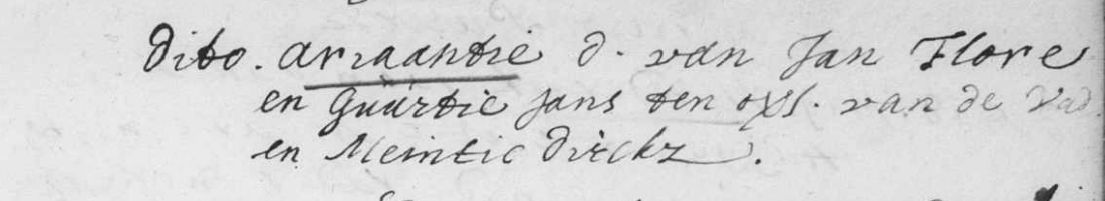 dito. arjaantie d. van Jan Flore
en Guurtie Jans ten oVs. van de Vad.
en Meintie dirckz.